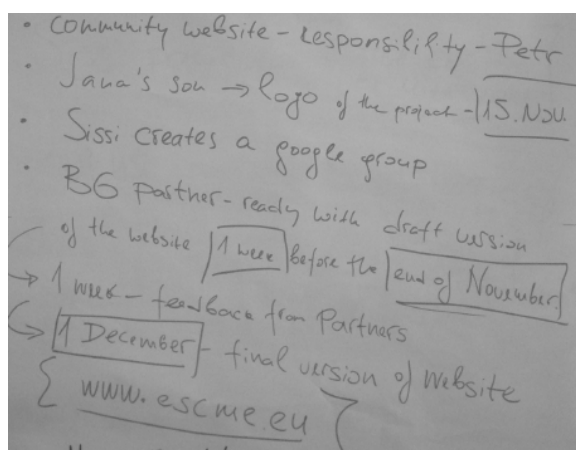 • Community website - responsility - Petr
• Jana's son → logo of the project - 15. Nov.
• Sissi creates a google group
• BG partner - ready with draft version
of the website 1 week before the end of November.
→ 1 week - feedback from Partners
→ 1 December - final version of website
{ www.escme.eu }